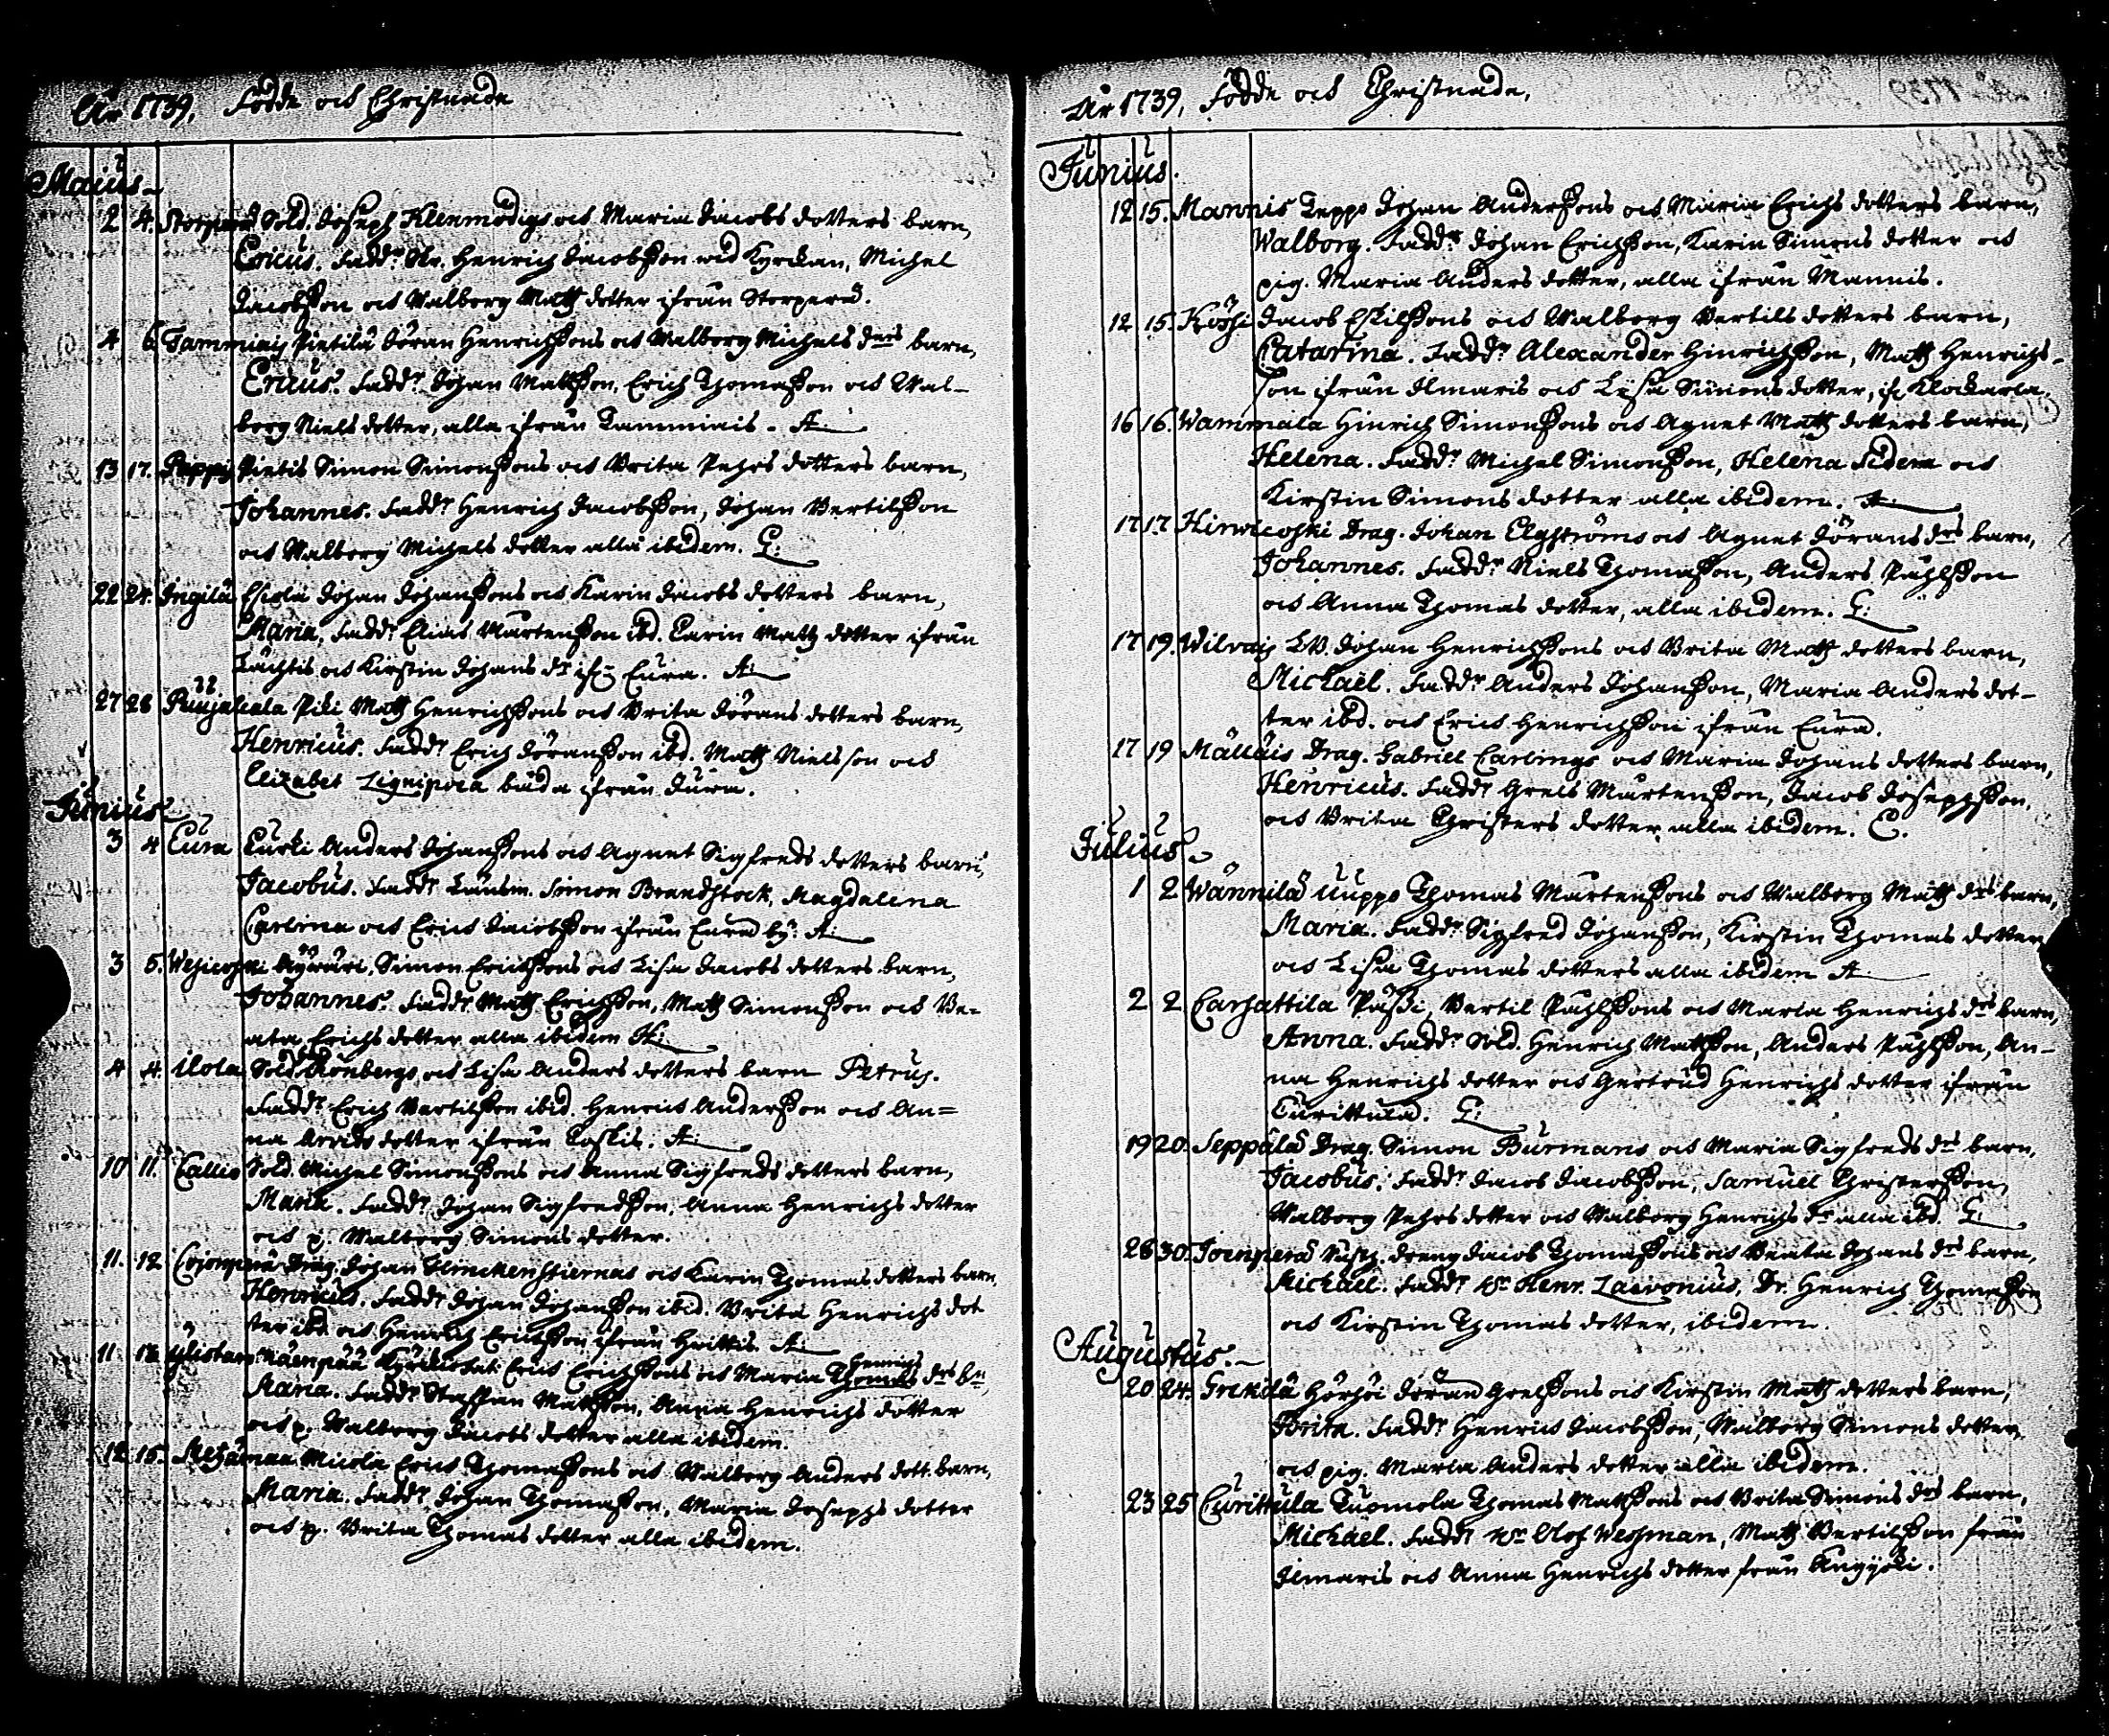 År 1739, Födde och Christnade
Maius
2 4. Storperä Sold. Joseph Klenmodigs och Maria Jacobs dotters barn,
Ericus. Fadd.r Henrich Jacobßon wid Kyrckan, Michel
Jacobßon och Walborg Matts dotter ifrån Storperä.
4 6. Tammiais Pietilä Jöran Henrichßons och Walborg Michels drs barn,
Ericus. Fadd.r Johan Matßon, Erich Thomaßon och Wal-
borg Niels dotter, alla ifrån Tammiais. A
13 17. Pappis Pietis Simon Simonßons och Brita Pehrs dotters barn,
Johannes. Fadd.r Henrich Jacobßon, Johan Bertilßon
och Walborg Michels dotter alla ibidem. G:
22 24. Ingilä Johan Johanßons och Karin Jacobs dotters barn,
Maria, Fadd.r Elias Mårtenßon ibd. Carin Matts dotter ifrån
Lächtis och Kirstin Johans dr ifr. Eura. A:
27 28 Pujalcala Piki Matts Henrichßons och Brita Jörans dotters barn,
Henricus. Fadd.r Erich Jöranßon ibd. Matts Nielsson och
Elizabet Lignipoea båda ifrån Jura.
Junius
3 4 Eura Curki Anders Johanßons och Agnet Sigfreds dotters barn,
Jacobus. Fadd.r Länsm. Simon Brandstock, Magdalena
Carlina och Erich Jacobßon ifrån Eura by. A:
3 5. Simon Erichßons och Lisa Jacobs dotters barn,
Johannes. Fadd.r Matts Erichßon, Matts Simonßon och Be-
ata Erichs dotter alla ibidem A:
4 4. Ilola Sold. Rönbergs och Lisa Anders dotters barn Petrus.
Fadd.r Erich Bertilßon ibid. Henrich Anderßon och An=
na Arvids dotter ifrån Coskis. A:
10 11. Callio Sold. Michel Simonßons och Anna Sigfreds dotters barn,
Maria. Fadd.r Johan Sigfredßon, Anna Henrichs dotter
och p. Walborg Simons dotter.
11. 12 Cojonperä Drag. Johan Flinckenstiernas och Karin Thomas dotters barn,
Henricus. Fadd.r Johan Johanßon ibid. Brita Henrichs dot
ter ibd. och Henrich Erichßon ifrån Hrittis. A:
11. 12. Ylistaro Mäenpää Erich Erichßons och Maria Thomas Henrichs drs bn,
Maria. Fadd.r Staffan Matßon, Anna Henrichs dotter
och p. Walborg Jacobs dotter alla ibidem.
12 15. Metzämaa Micola Erich Thomaßons och Walborg Anders dott. barn,
Maria. Fadd.r Johan Thomaßon, Maria Josephs dotter
och p. Brita Thomas dotter alla ibidem.
År 1739, Födde och Christnade,
Junius.
12 15. Mannis Teppo Johan Anderßons och Maria Erichs dotters barn,
Walborg. Fadd.r Johan Erichßon, Karin Simons dotter och
pig. Maria Anders dotter, alla ifrån Mannis.
12 15. Jacob Eskilßons och Walborg Bertils dotters barn,
Catarina. Fadd.r Alexander Hinrichßon, Matts Henrichs-
son ifrån Ilmaris och Lisa Simons dotter, ifr. Klockarla.
16 16. Wammala Hinrich Simonßons och Agnet Matts dotters barn,
Helena. Fadd.r Michel Simonßon, Helena och
Kirstin Simons dotter alla ibidem. A:
17 17. Hirwicoski Drag. Johan Elgströms och Agnet Jörans drs barn,
Johannes. Fadd.r Niels Thomaßon, Anders Påhlßon
och Anna Thomas dotter, alla ibidem. G:
17 19. Wilvais Johan Henrichßons och Brita Matts dotters barn,
Michaël. Fadd.r Anders Johanßon, Maria Anders dot-
ter ibd. och Erich Henrichßon ifrån Eura.
17 19 Mälläis Drag. Gabriel Carlings och Maria Johans dotters barn,
Henricus. Fadd.r Grels Mårtenßon, Jacob Josephßon,
och Brita Christers dotter alla ibidem. C.
Julius
1 2 Wännilä Uuppo Thomas Mårtenßons och Walborg Matts drs barn,
Maria. Fadd.r Sigfred Johanßon, Kirstin Thomas dotter
och Lisa Thomas dotters alla ibidem A
2 2 Carhattila Påßi, Bertil Påhlßons och Maria Henrichs drs barn,
Anna. Fadd.r Sold. Henrich Matßon, Anders Påhlßon, An-
na Henrichs dotter och Gertrud Henrichs dotter ifrån
Curittula. G:
19 20. Seppälä Drag. Simon Burmans och Maria Sigfreds drs barn,
Jacobus. Fadd.r Jacob Jacobßon, Samuel Christerßon,
Walborg Pehrs dotter och Walborg Henrichs dr alla ibd. G:
28 30. Joenperä dreng Jacob Thomaßons och Beata Johans drs barn,
Michaël. Fadd.r Hr Henr. Laevonius, Dr. Henrich Thomaßon
och Kirstin Thomas dotter, ibidem.
Augustus.
20 24. Grekilä Jöran Grelßons och Kirstin Matts dotters barn,
Brita. Fadd.r Henrich Jacobßon, Walborg Simons dotter
och pig. Maria Anders dotter alla ibidem.
23 25 Curittula Tuomola Thomas Matßons och Brita Simons drs barn,
Michaël. Fadd.r Hr Olof Weßman, Matts Bertilßon från
Ilmaris och Anna Henrichs dotter från